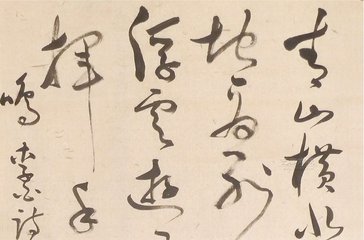 青山橫北
地一為別
浮雲遊
揮手
鳴 李白詩